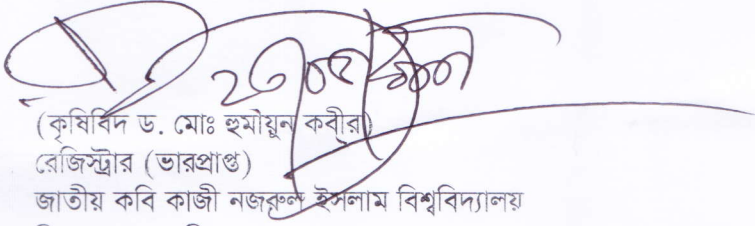 (কৃষিবিদ ড. মোঃ হুমায়ুন কবীর)
রেজিস্ট্রার (ভারপ্রাপ্ত)
জাতীয় কবি কাজী নজরুল ইসলাম বিশ্ববিদ্যালয়